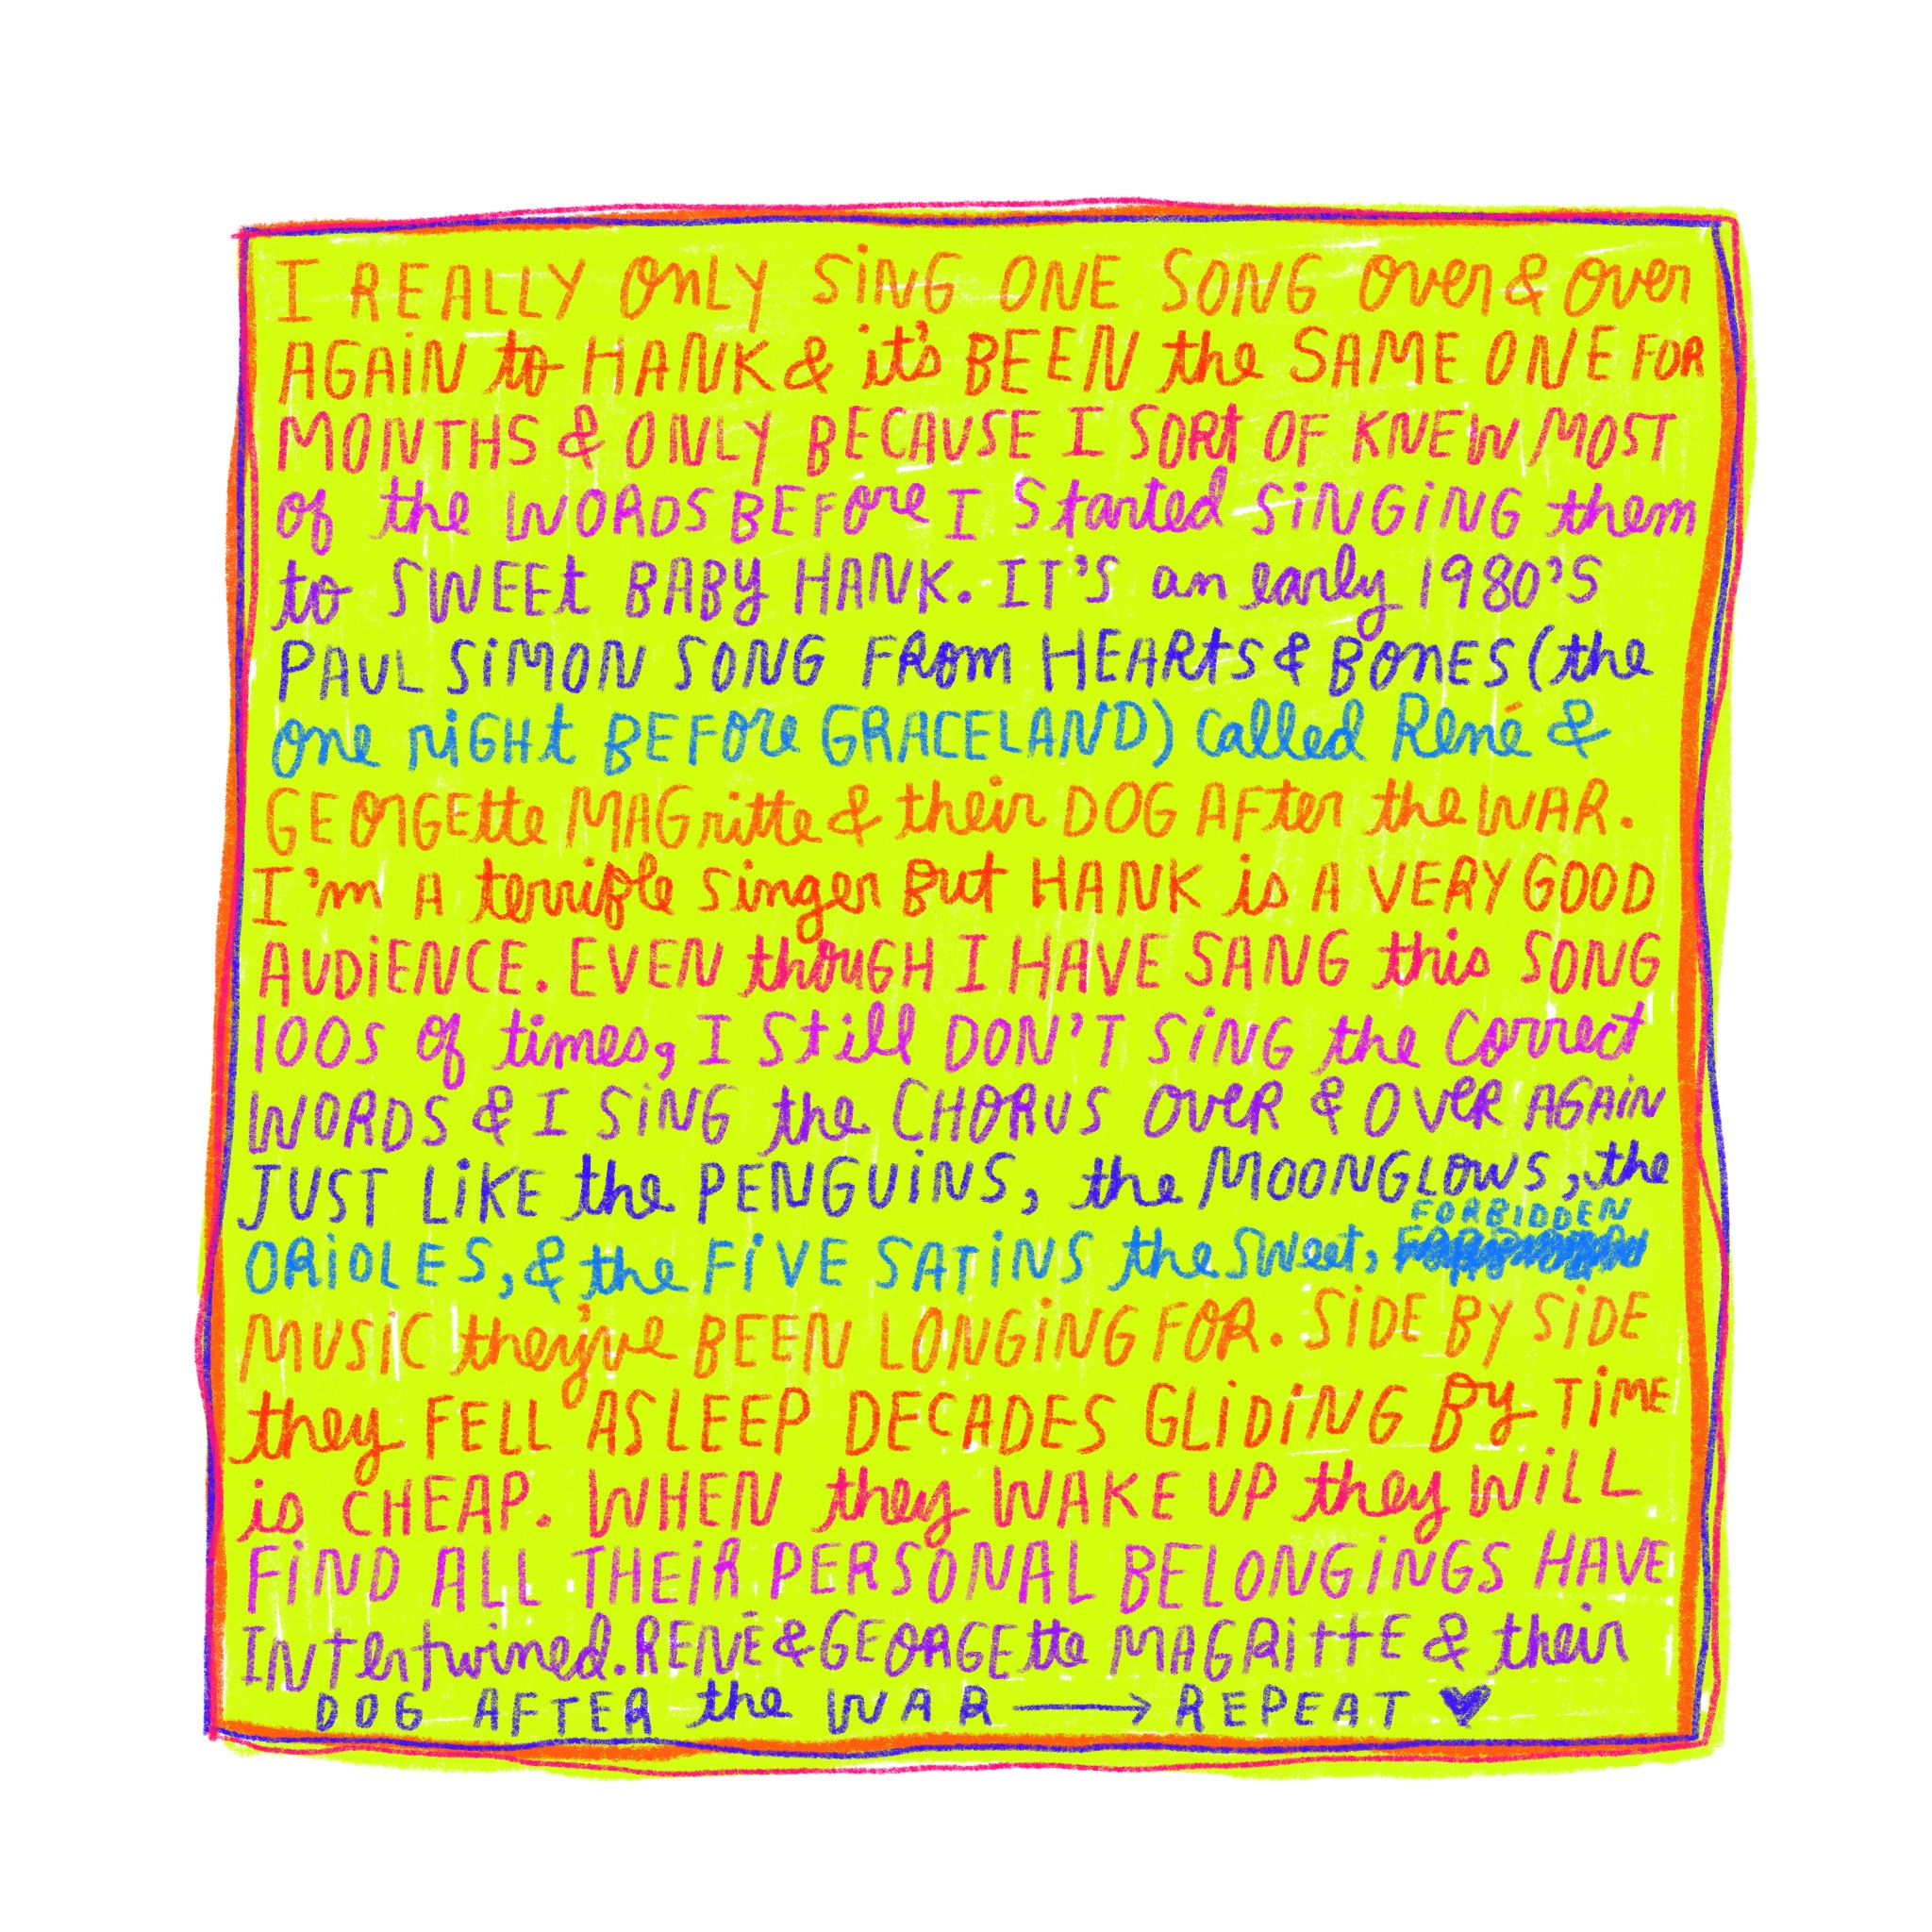 I REALLY ONLY SING ONE SONG OVER & OVER
AGAIN to HANK & it's BEEN the SAME ONE FOR
MONTHS & ONLY BECAUSE I SORt OF KNEW MOST
of the WORDS BEFORE I Started SINGING them
to SWEEt BABY HANK. IT'S an early 1980'S
PAUL SIMON SONG FROM HEARtS & BONES (the
one riGHt BEFORE GRACELAND) called René &
GEORGEtte MAGritte & their DOG AFter the WAR.
I'm A terrible singer But HANK is A VERY GOOD
AUDIENCE. EVEN thouGH I HAVE SANG this SONG
100s of times, I Still DON'T SING the Correct
WORDS & I SING the CHORUS OVER & OVER AGAIN
JUST LIKE the PENGUINS, the MOONGLOWS, the
ORIOLES, & the FIVE SATINS the Sweet, FORBIDDEN
MUSIC they've BEEN LONGING FOR. SIDE BY SIDE
they FELL ASLEEP DECADES GLIDING By TIME
is CHEAP. WHEN they WAKE UP they WILL
FIND ALL THEIR PERSONAL BELONGINGS HAVE
INtertwined. RENÉ & GEORGEtte MAGRittE & their
DOG AFTER the WAR ⟶ REPEAT ♥